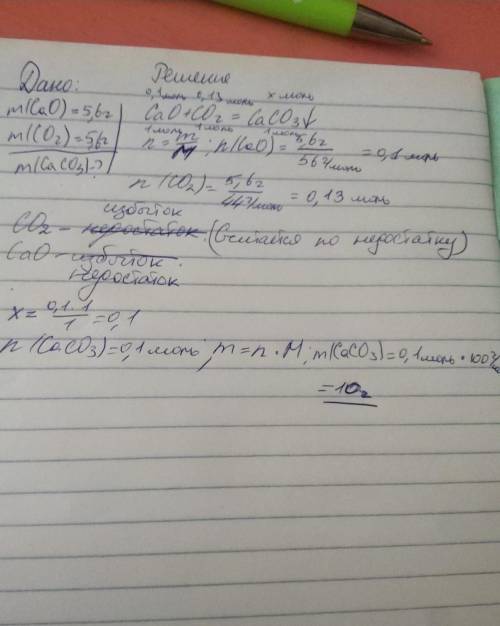 Дано:
Решение
m(CaO)=5,6г
m(CO₂)=5,6г
m(CaCO₃)-?
0,1моль 0,13моль x моль
CaO+CO₂ = CaCO₃↓
1моль 1моль 1моль
n=m/M; n(CaO)=5,6г/56г/моль=0,1 моль
n(CO₂)=5,6г/44г/моль=0,13 моль
избыток
CO₂ - недостаток. (Считается по недостатку)
CaO - избыток.
недостаток
x=0,1·1/1=0,1
n(CaCO₃)=0,1моль, m=n·M; m(CaCO₃)=0,1моль·100г/
=10г